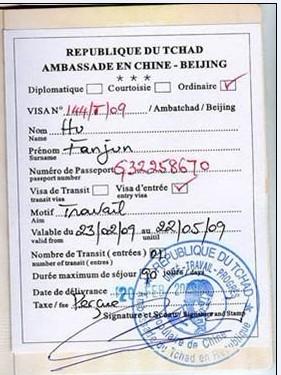 REPUBLIQUE DU TCHAD
AMBASSADE EN CHINE - BEIJING
***
Diplomatique Courtoisie Ordinaire
VISA N° 144/T/09 / Ambatchad / Beijing
Nom Hu
Name
Prénom Fanjun
Surname
Numéro de Passeport G32258670
passport number
Visa de Transit Visa d'entrée
transit visa entry visa
Motif Travail
Aim
Valable du 23/02/09 au 22/05/09
valid from until
Nombre de Transit (entrées) 01
number of transit (entres)
Durée maximum de séjour 90 jours / days
Date de délivrance 20 FEB 20
Taxe / fee Perçue
Signature et Sceau / Signature and Stamp
REPUBLIQUE DU TCHAD
-TRAVAIL-PROGRES